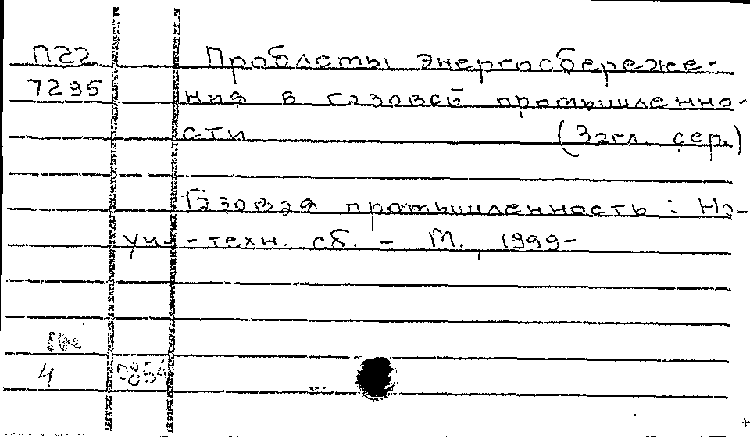 П22 Проблемы энергосбереже-
7295 ния в газовой промышленно-
сти (Загл. сер.)
Газовая промышленность: На-
учн.-техн. сб. - М., 1999-
4